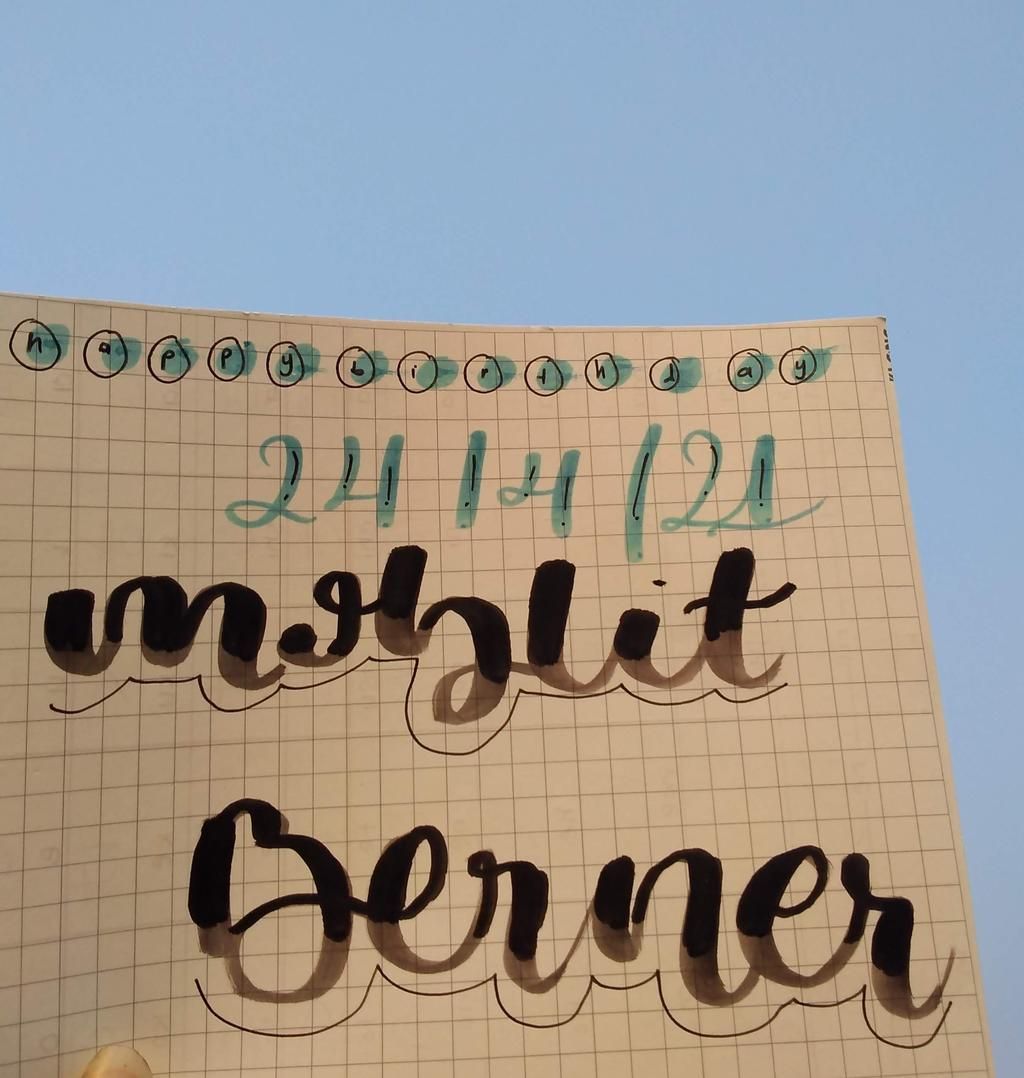 happy birthday
24/4/21
Berner